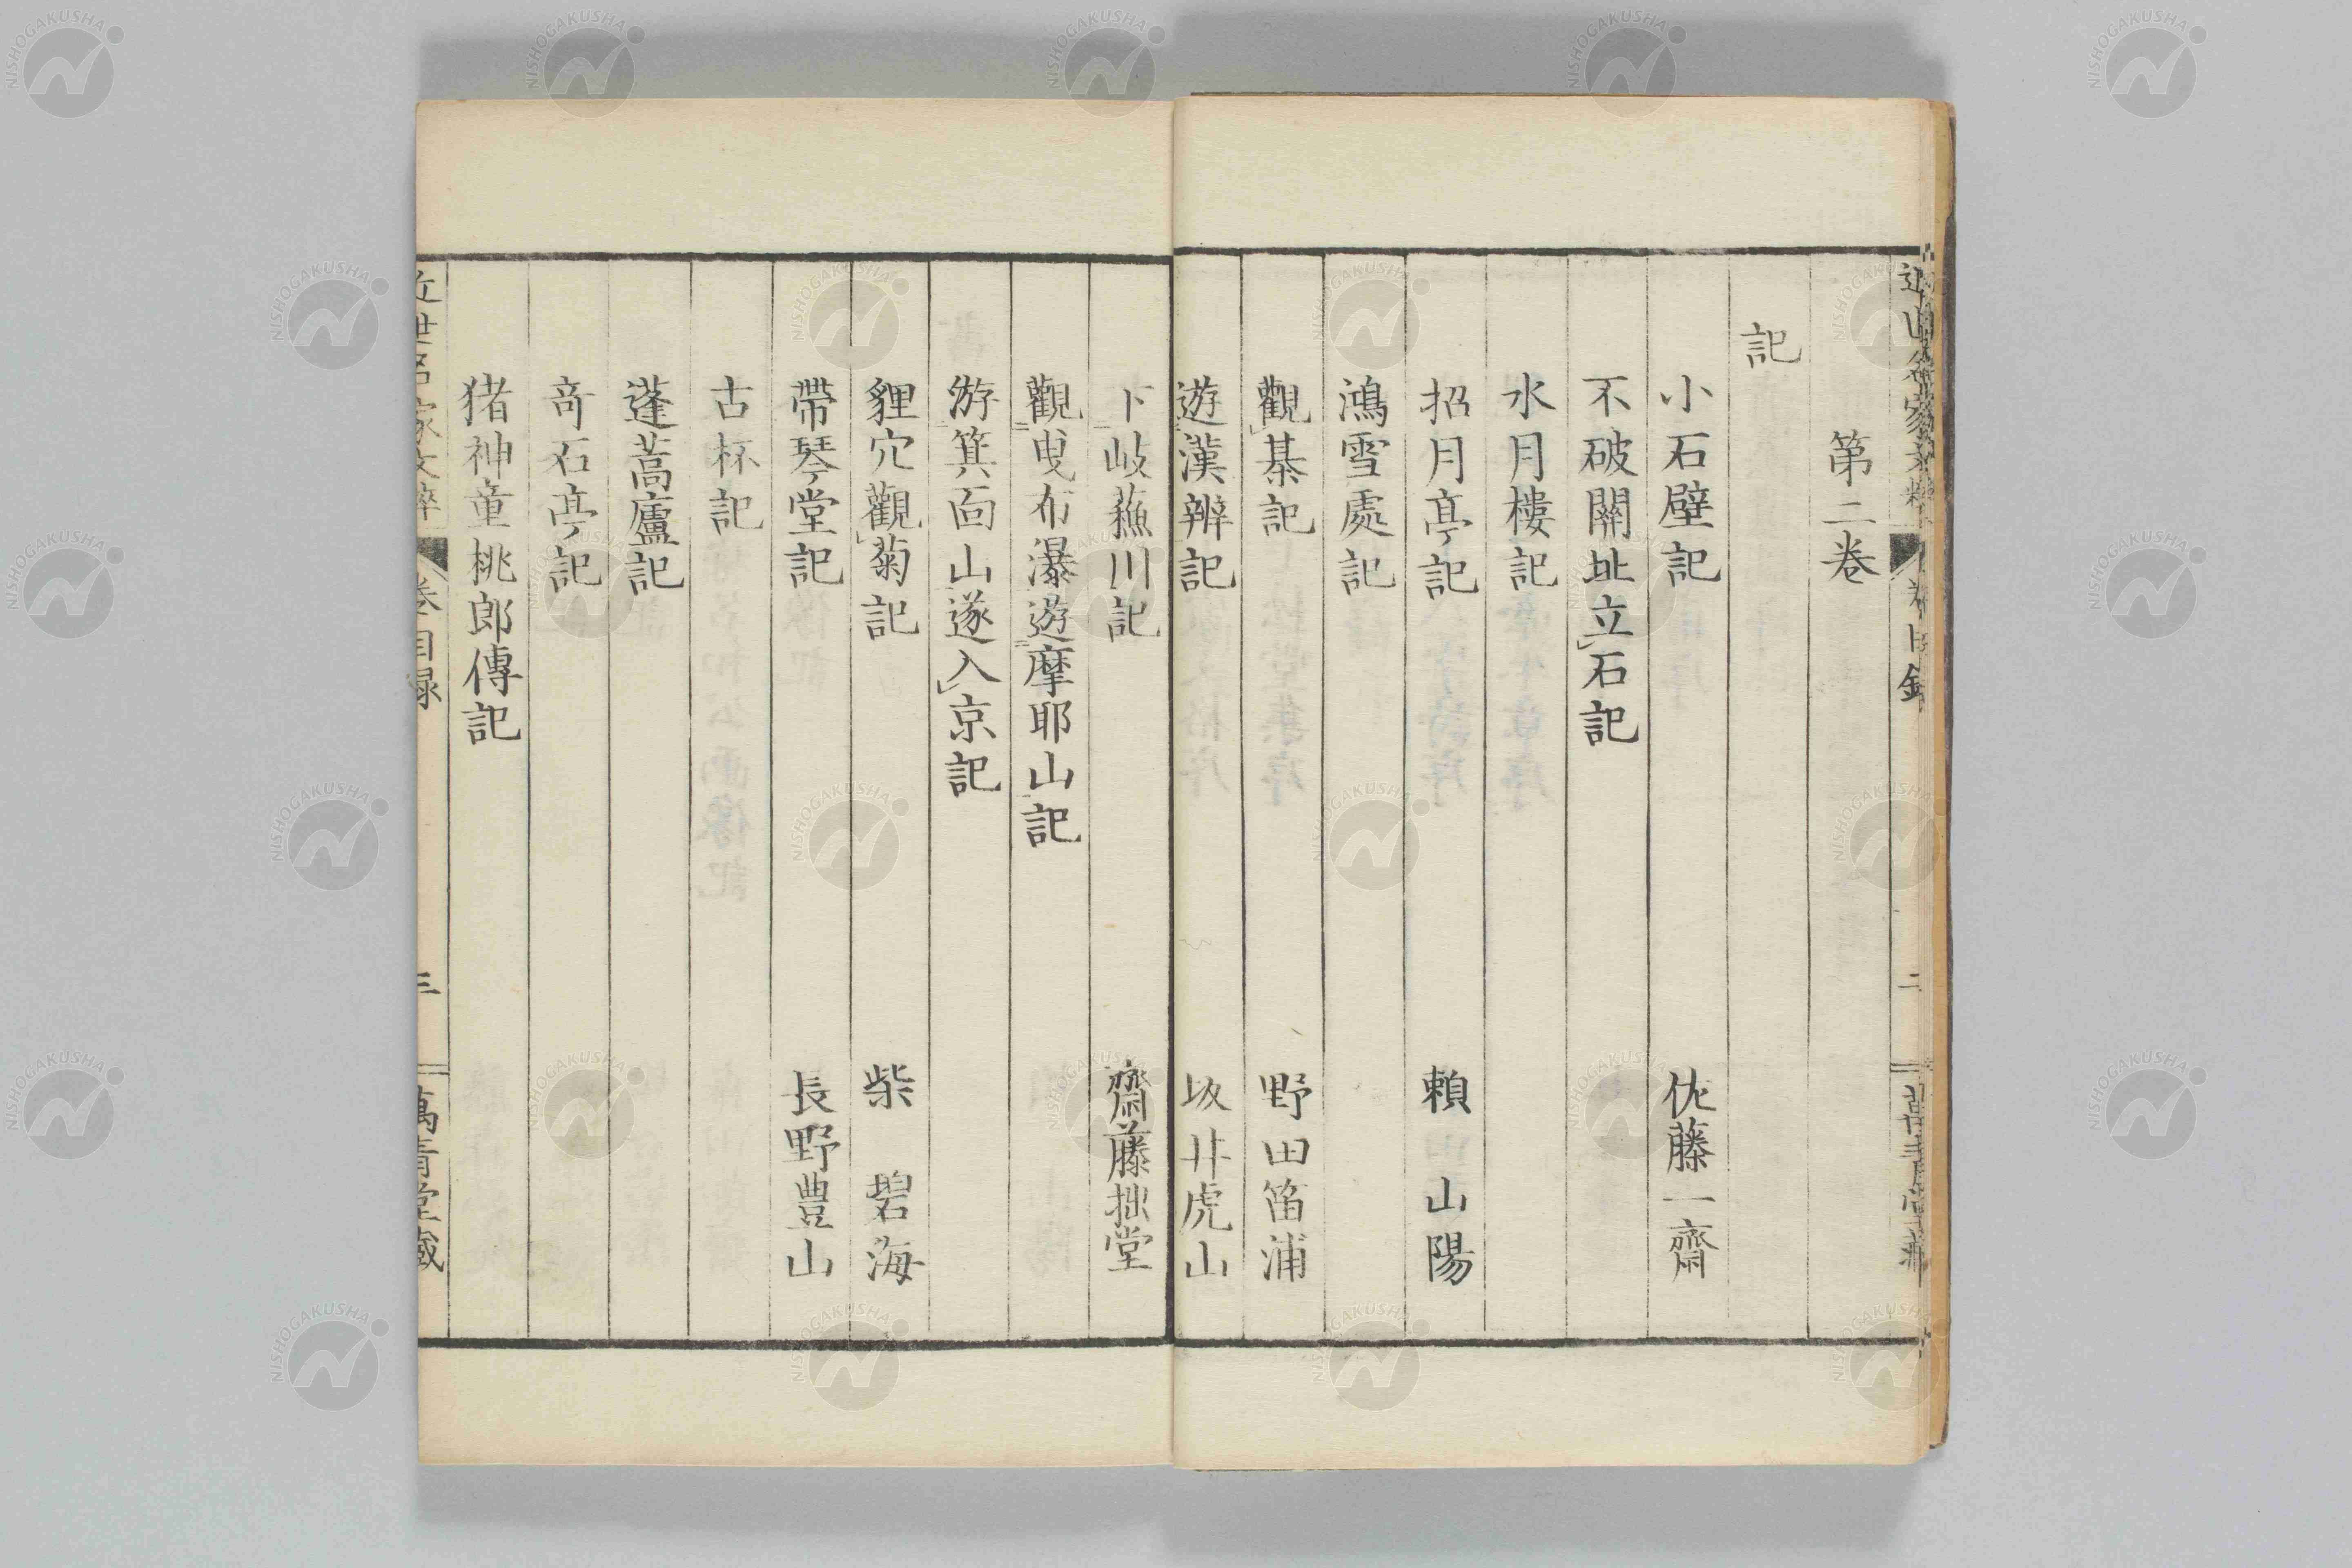 第二卷
記
小石壁記 佐藤一齋
不破關址立石記
水月樓記
招月亭記 賴山陽
鴻雪處記
觀棊記 野田笛浦
遊漢辨記 坂井虎山
下岐蘓川記 齋藤拙堂
觀曳布瀑遊摩耶山記
游箕面山遂入京記
貍穴觀菊記 柴碧海
帶琴堂記 長野豊山
古杯記
蓬蒿廬記
奇石亭記
猪神童桃郎傳記
近世名家文粹 卷目録 三 萬青堂藏
NISHOGAKUSHA